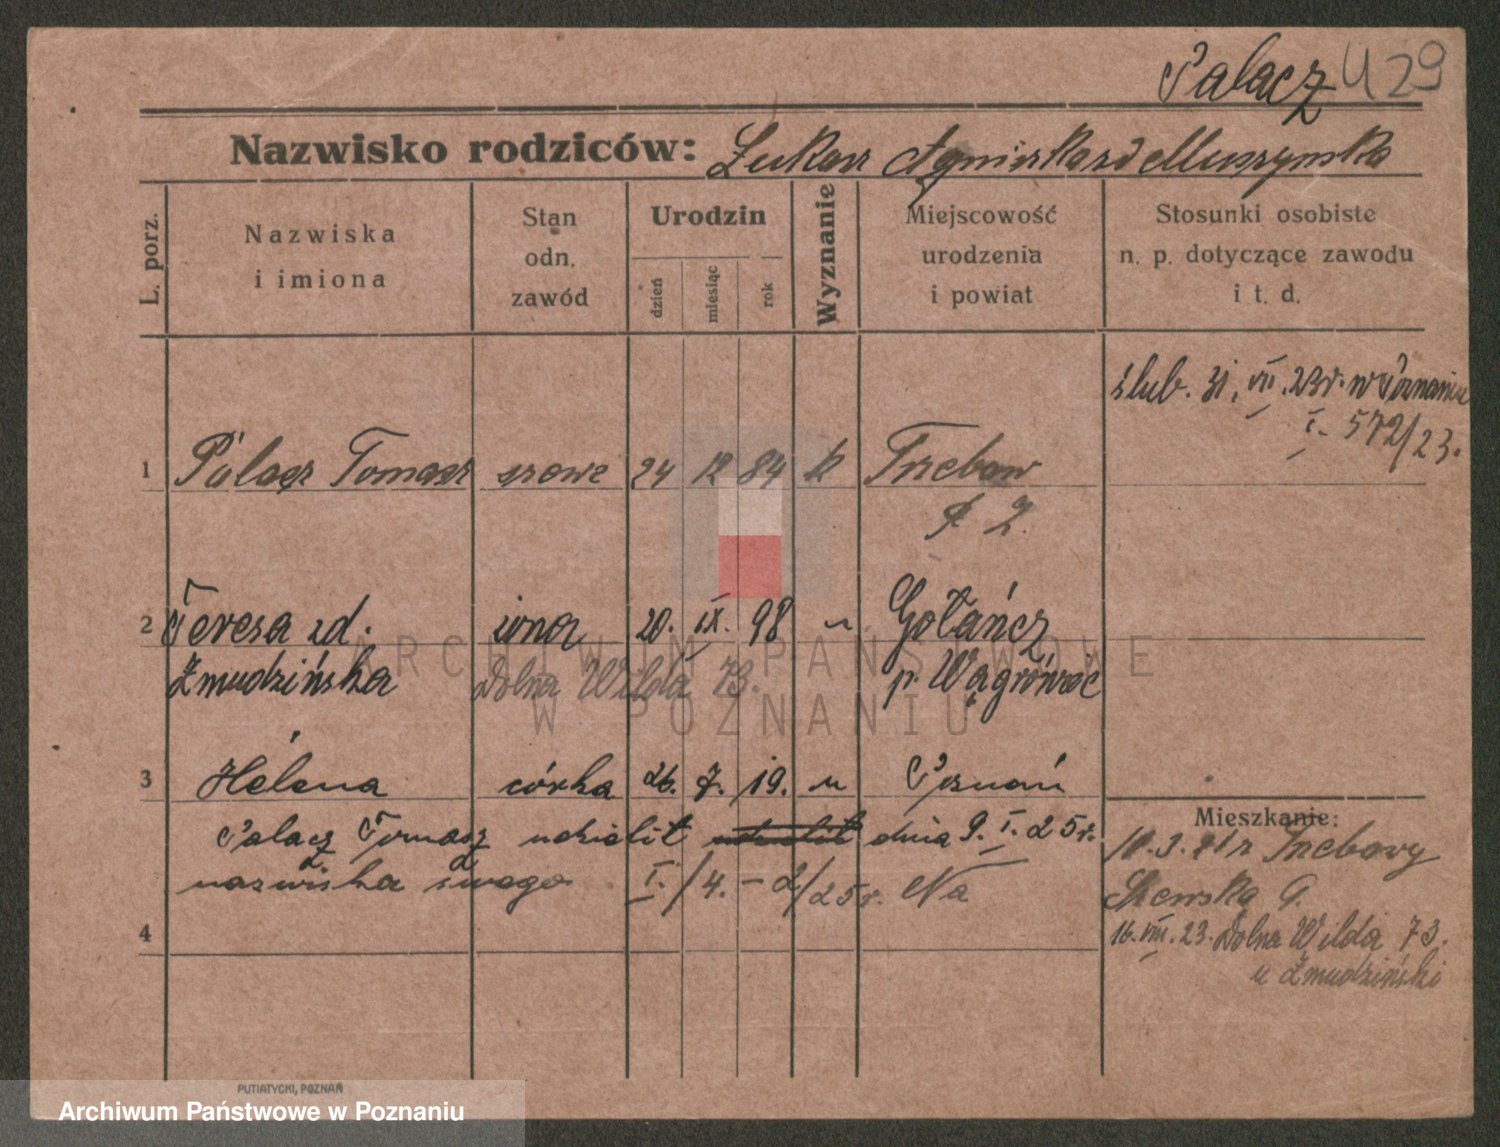 Palacz U 29
Nazwisko rodziców: Łukasz Agnieszka zd Muszyńska
L. porz.
Nazwiska
i imiona
Stan
odn.
zawód
Urodzin
dzień
miesiąc
rok
Wyznanie
Miejscowość
urodzenia
i powiat
Stosunki osobiste
n. p. dotyczące zawodu
i t. d.
ślub. 31. VII. 23 r. w Poznaniu
I. 572/23.
1 Palacz Tomasz szewc 24 12 84 k Trzebaw
2 Teresa zd. żona 20. IX. 98 " Gołańcz
Żmudzińska Dolna Wilda 73. p. Wągrówiec
3 Helena córka 26. 7. 19. " Poznań
Palacz Tomasz udzielił dnia 9. I. 25 r.
nazwiska swego I./4. - 2/25 r. Na
4
Mieszkanie:
10.3.21 z Trzebawy
16. VIII. 23. Dolna Wilda 73.
u Żmudziński
PUTIATYCKI, POZNAŃ
ARCHIWUM PAŃSTWOWE
W POZNANIU
Archiwum Państwowe w Poznaniu